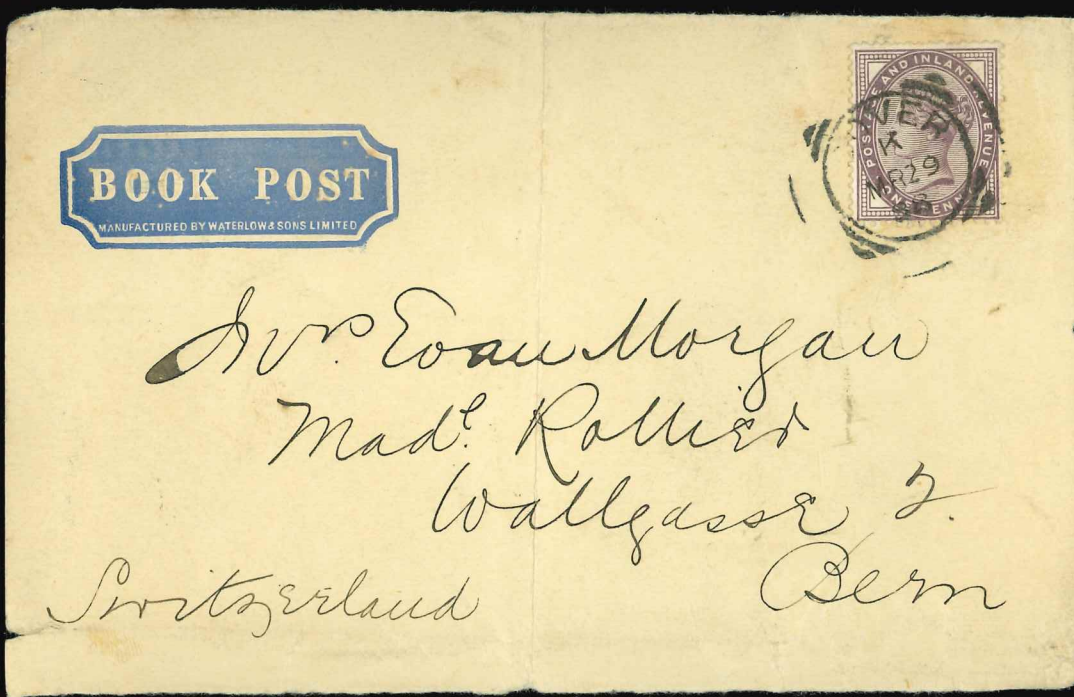 BOOK POST
MANUFACTURED BY WATERLOW & SONS LIMITED
POSTAGE AND INLAND REVENUE
ONE PENNY
K
MR 29
98
Mrs. Evan Morgan
Made. Rollier
Wallgasse 2.
Bern
Switzerland